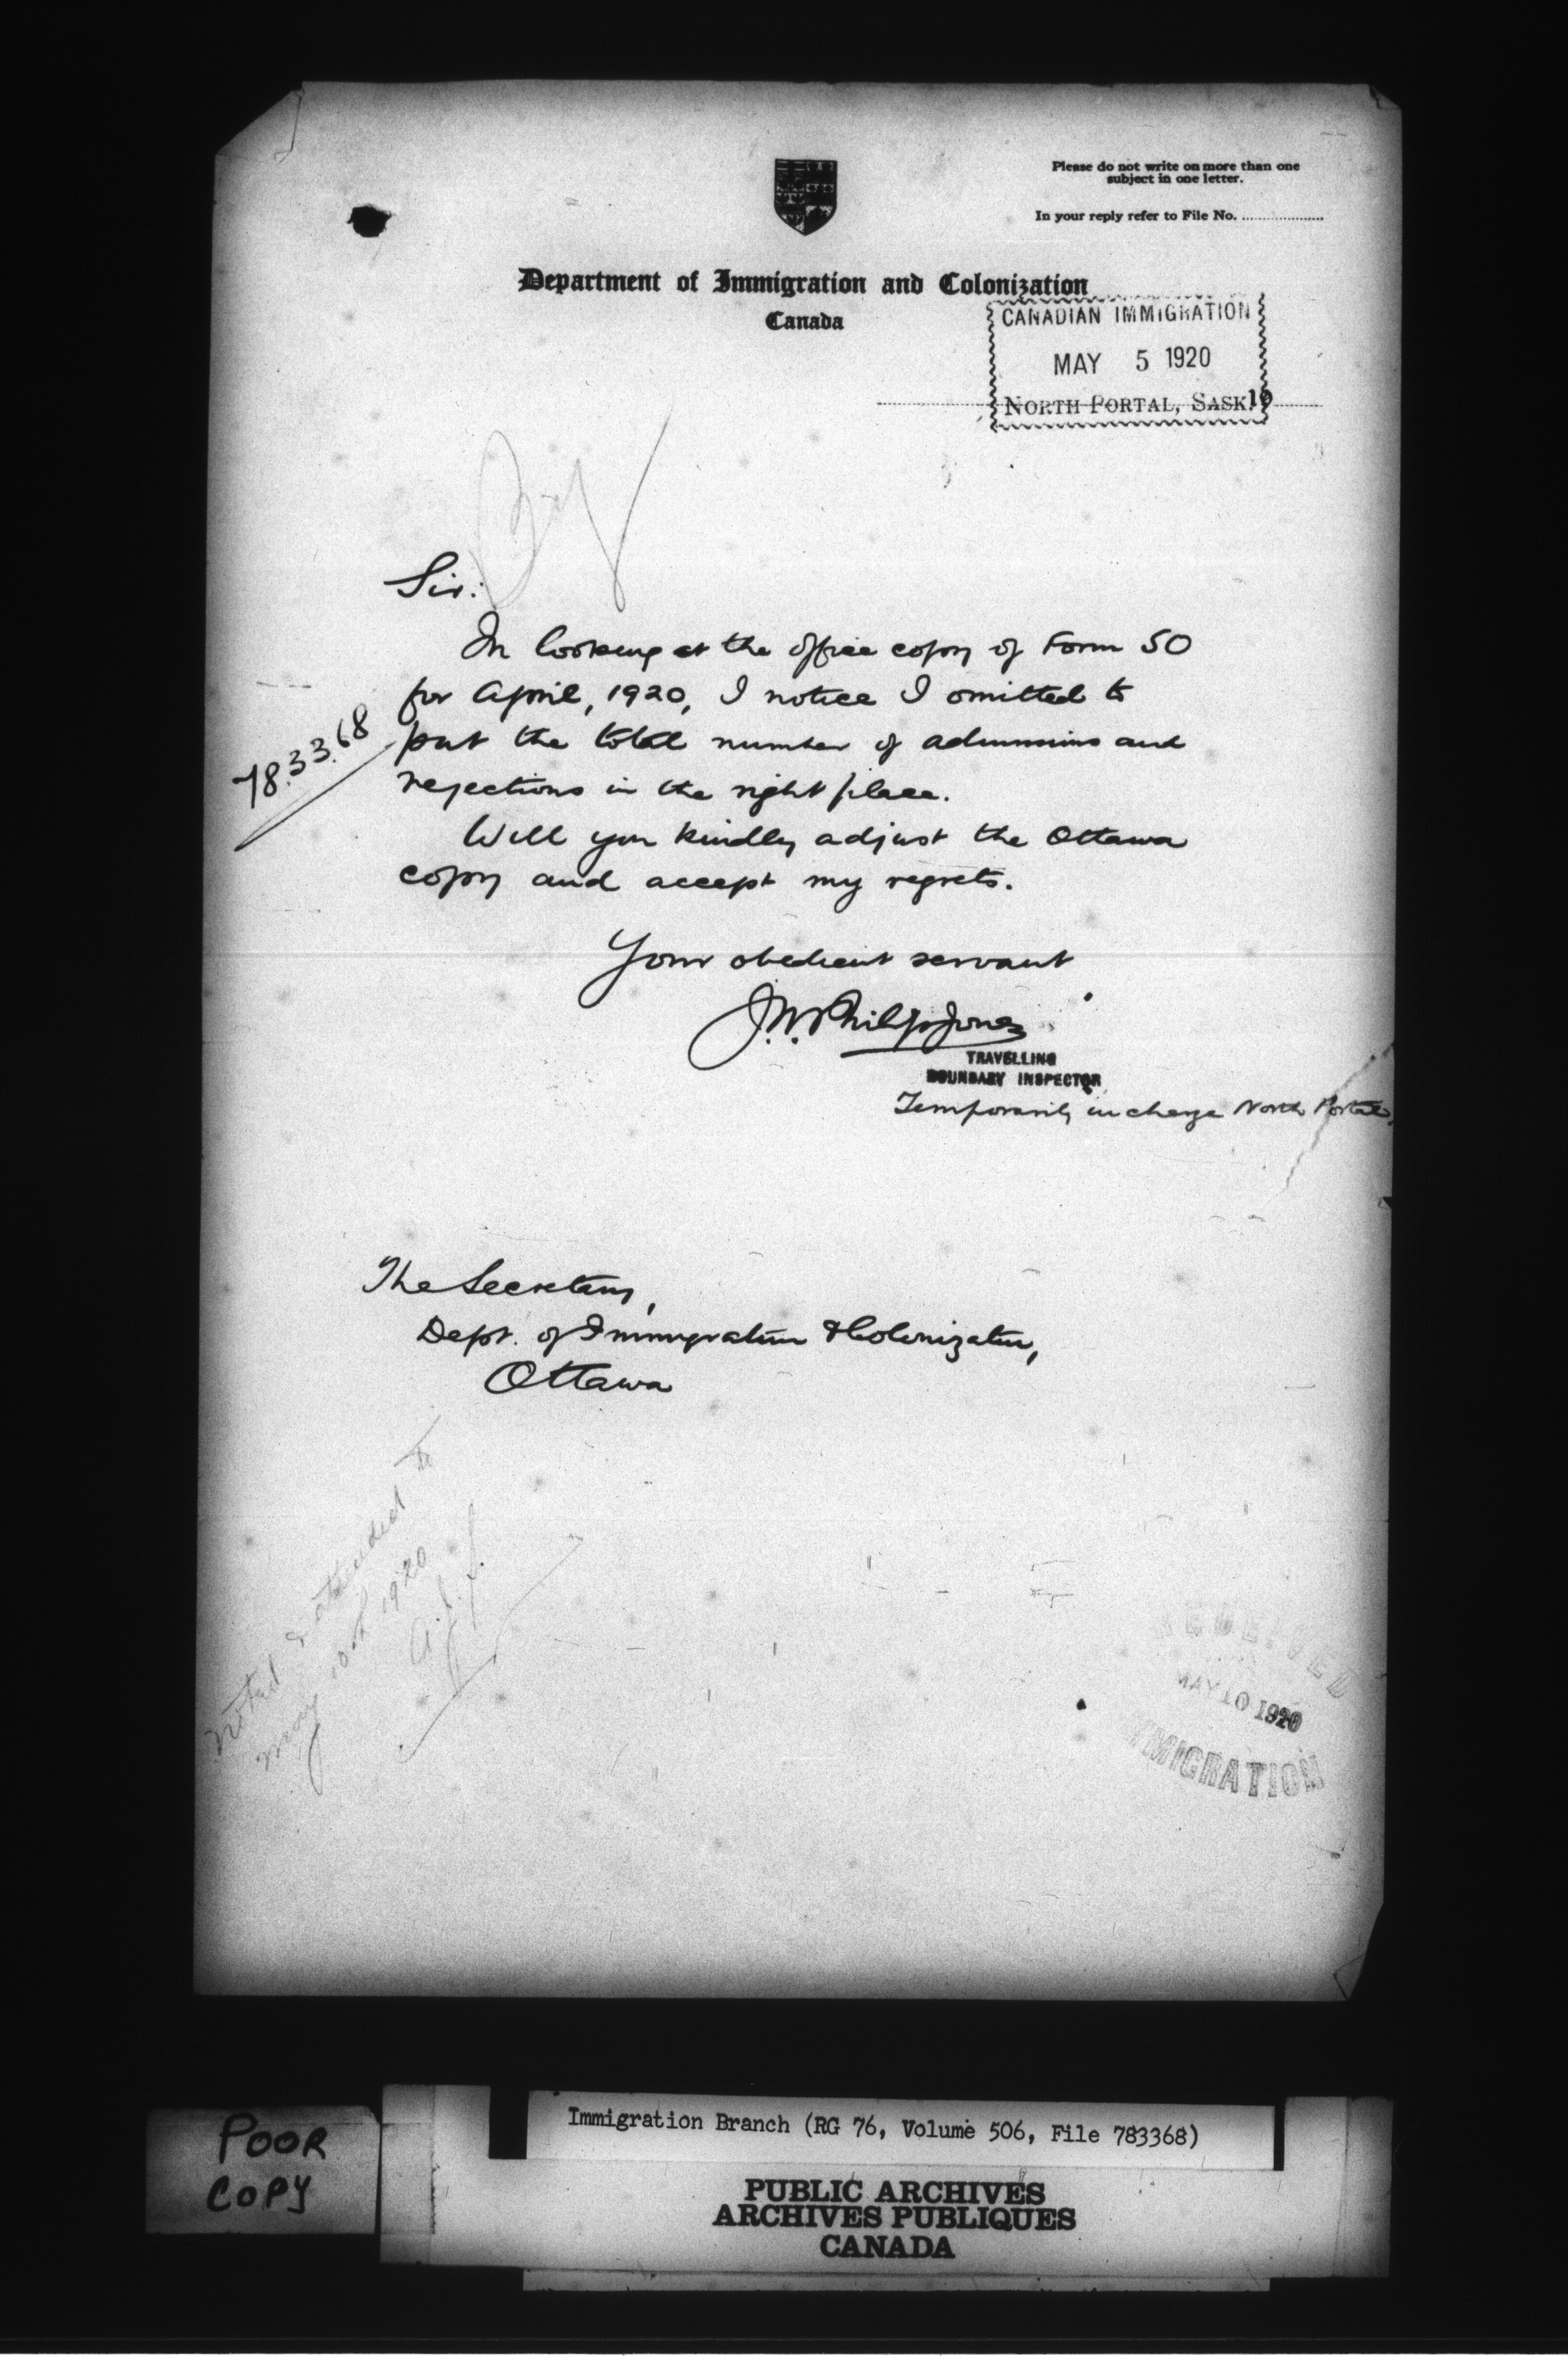 Please do not write on more than one
subject in one letter.
In your reply refer to File No. ....................
Department of Immigration and Colonization
Canada
CANADIAN IMMIGRATION
MAY 5 1920
NORTH PORTAL, SASK.
19
Sir:
In looking at the office copy of Form 50
for April, 1920, I notice I omitted to
put the total number of admissions and
rejections in the right place.
Will you kindly adjust the Ottawa
copy and accept my regrets.
783368
Your obedient servant
J.W. Philip Jones
TRAVELLING
BOUNDARY INSPECTOR
Temporarily in charge North Portal.
The Secretary,
Dept. of Immigration & Colonization,
Ottawa
Noted & attended to
May 10th 1920
RECEIVED
MAY 10 1920
IMMIGRATION
POOR
COPY
Immigration Branch (RG 76, Volume 506, File 783368)
PUBLIC ARCHIVES
ARCHIVES PUBLIQUES
CANADA